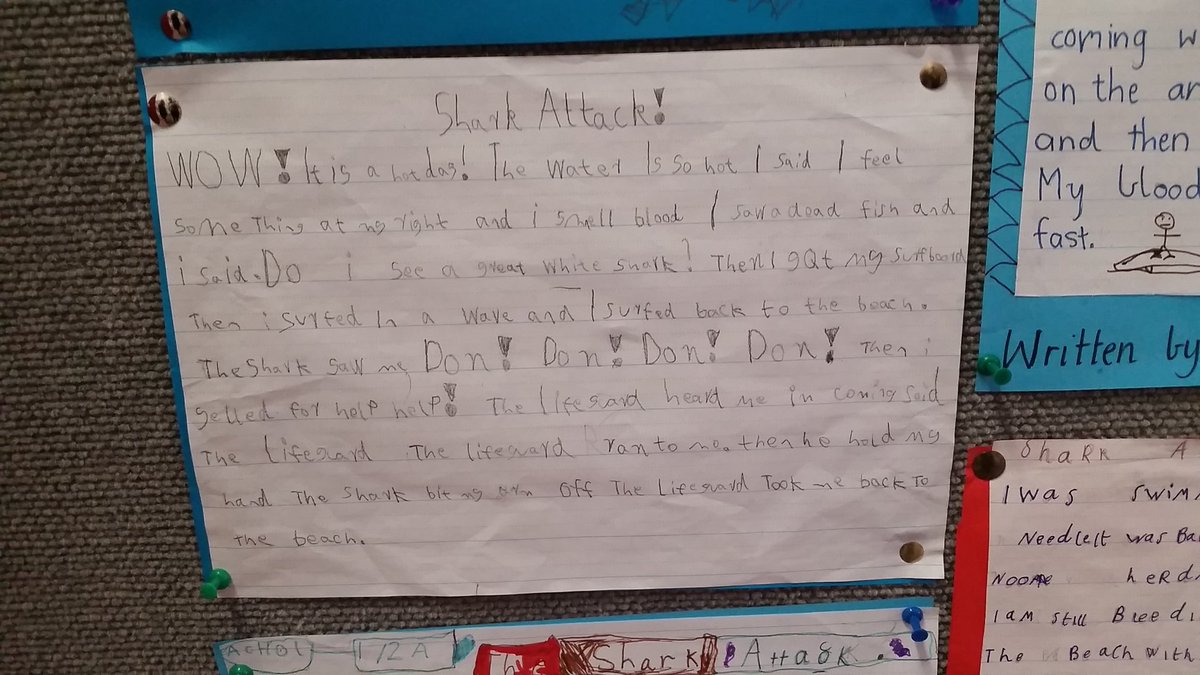 Shark Attack!
WOW! It is a hot day! The water Is so hot I said I feel
some Thing at my right and i smell blood I saw a dead fish and
i said. Do i see a great white shark! Then I gat my surfboard
Then i surfed In a wave and I surfed back to the beach.
The Shark saw my Don! Don! Don! Don! Then i
yelled for help help! The lifegard heard me in coming said
The lifegard The lifegward ran to me. then he hold my
hand The shark bit my arm off The Lifegward Took me back To
the beach.
coming w
on the ar
and then
My blood
fast.
Written by
Shark A
I was swim
Needle It was Ba
herd
I am still Bleedi
The Beach with
ACHOL 1/2A
The Shark Attack.